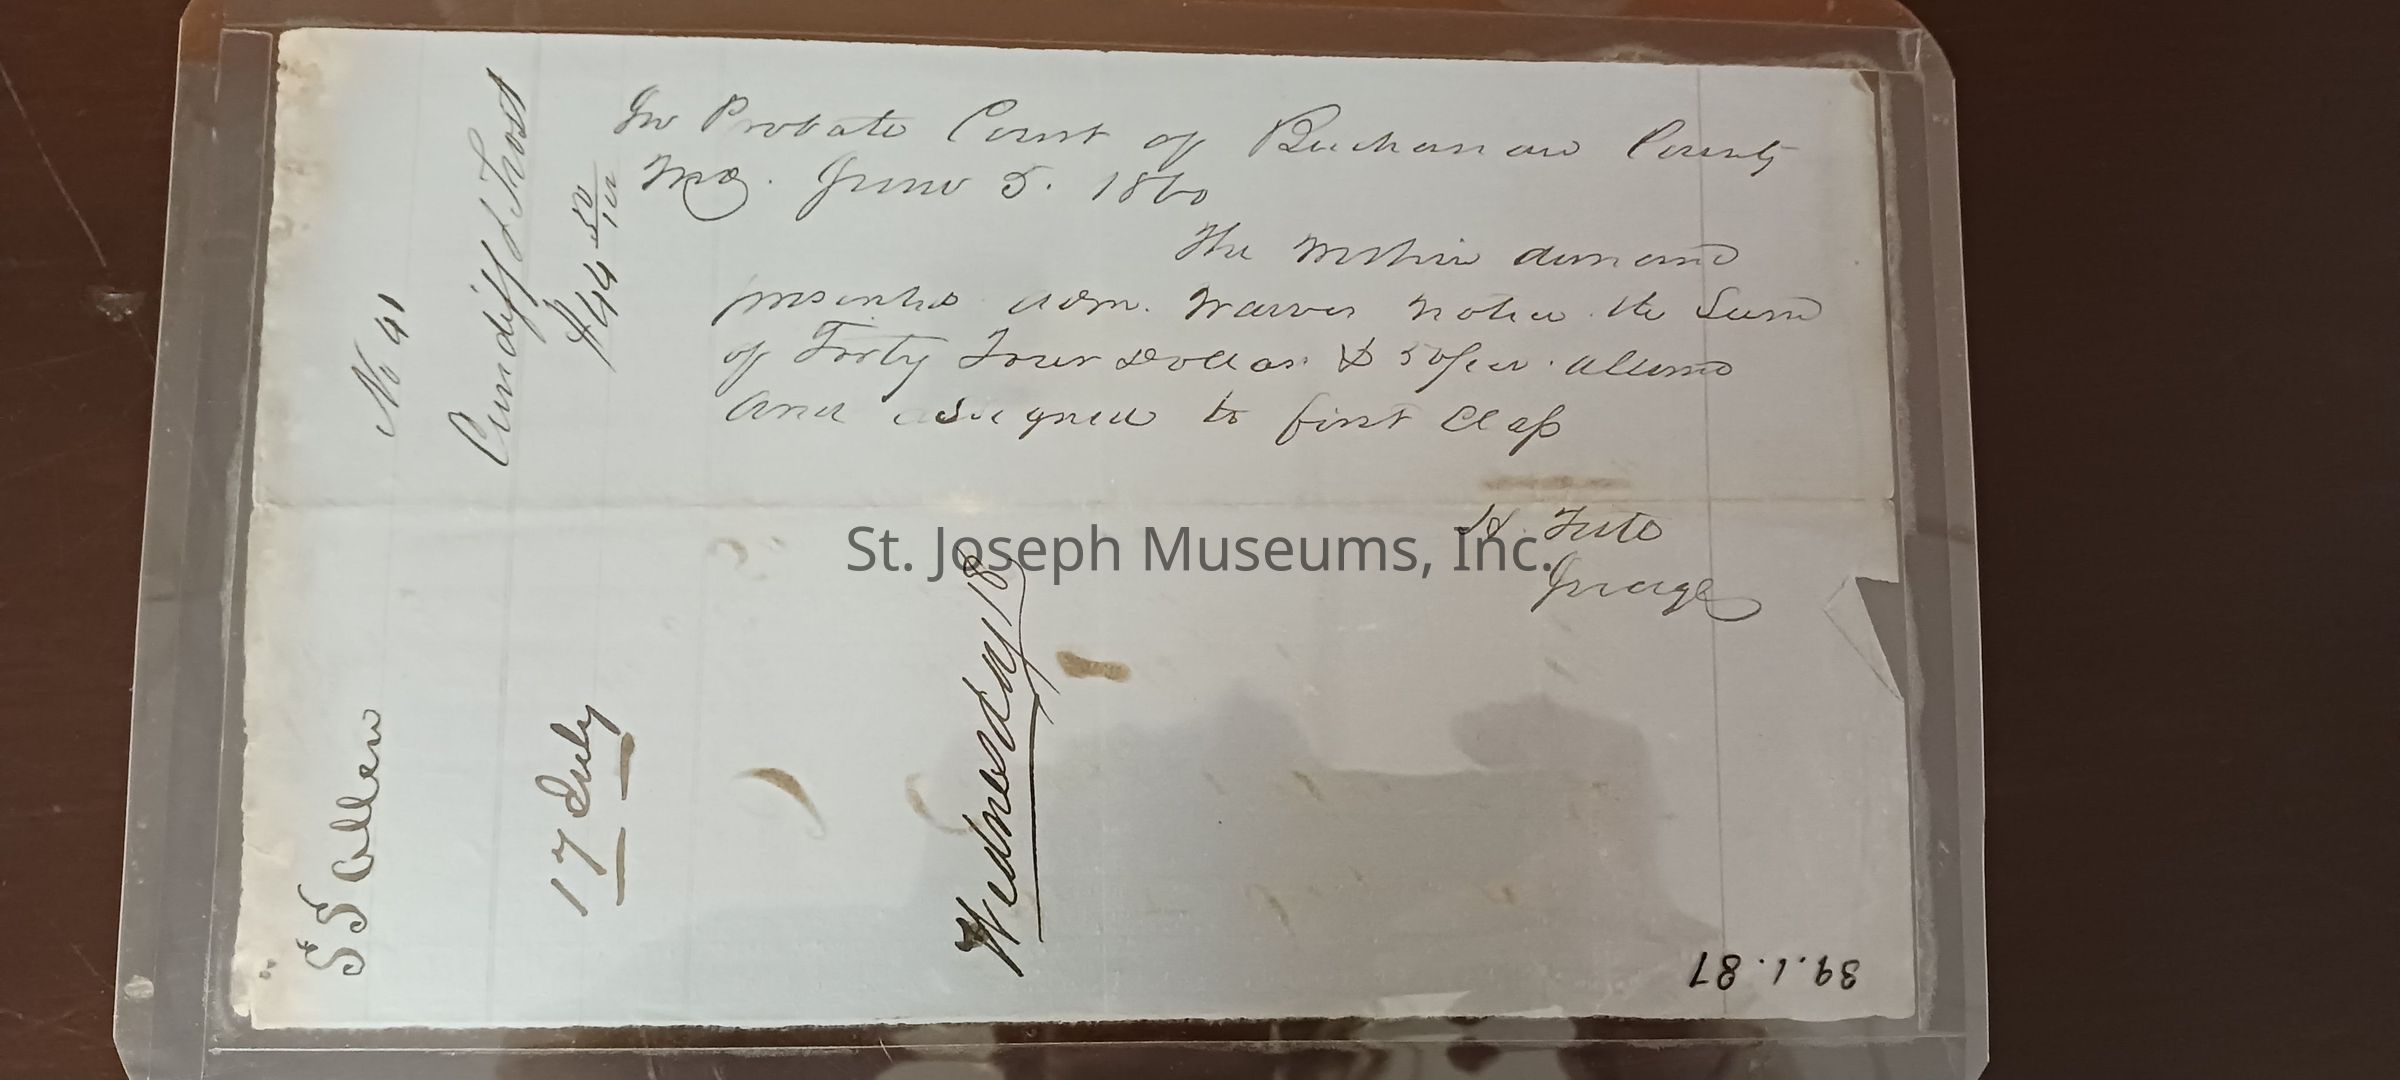 In Probate Court of Buchanan County
Mo. June 5. 1860
The within demand
presented adm. waives notice the Sum
of Forty Four Dollars & 50/cts. allowed
and assigned to first Class
H. Tutt
Judge
No 41
Cundiff & Trost
$44 50/100
S S Allen
17 July
Wednesday 18
39.1.87
St. Joseph Museums, Inc.